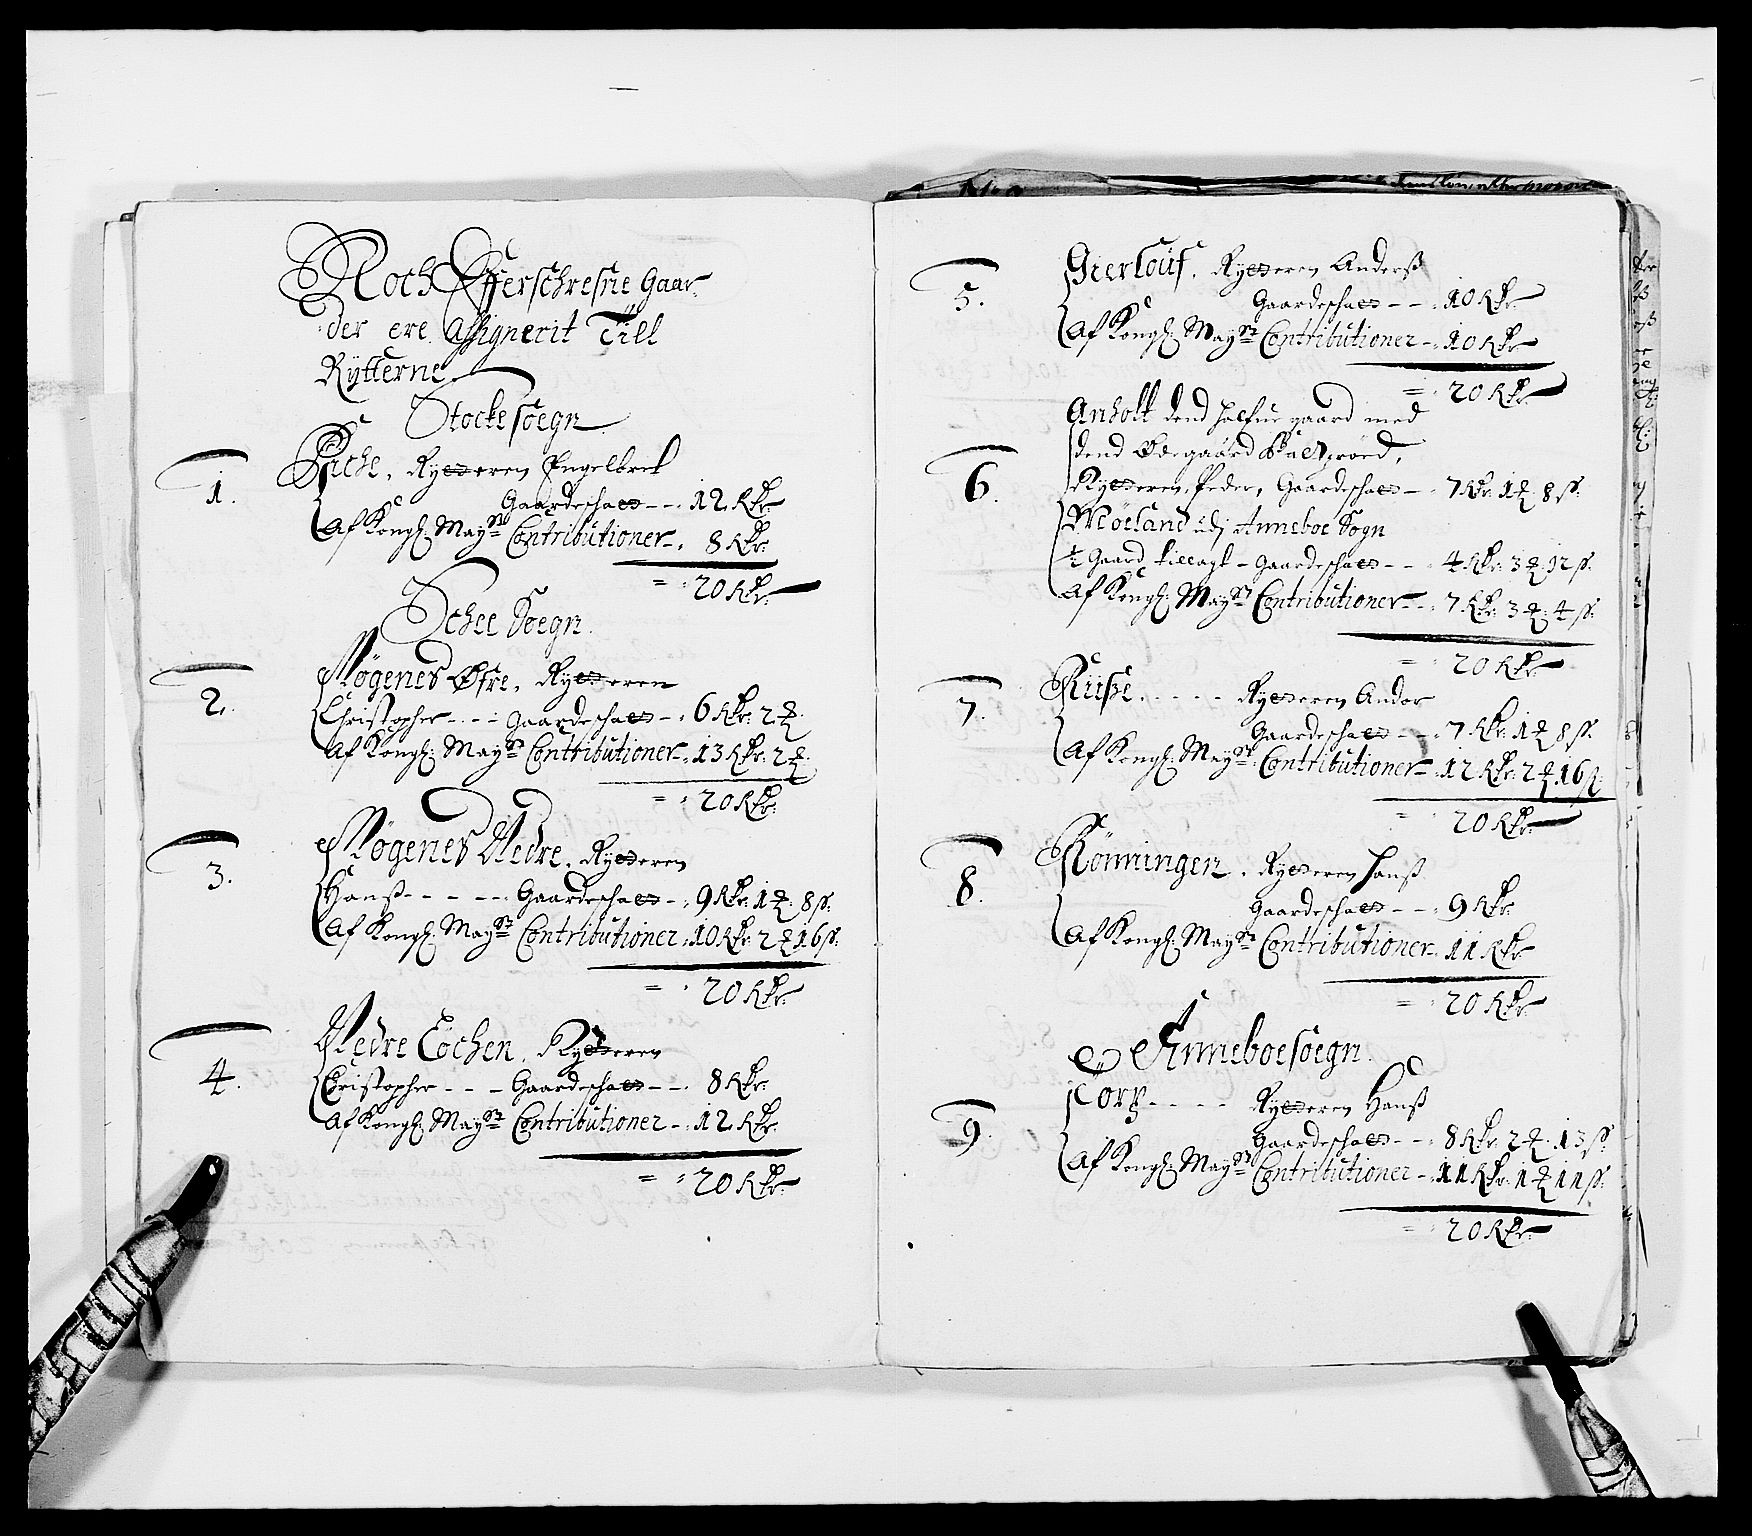 Noch Effterschrefne Gaar-
der ere Assignerit Till
Rÿtterne
Stocke soegn
1. Riche, Rytteren Engelbret
Gaardeschatt - - 12 Rdr
Af Kongl: Mayst: Contributioner - 8 Rdr:
= : 20 Rdr:
Schee Soegn
2. Møgenes Øfre, Rytteren
Christopher - - - Gaardeschatt - : 6 Rdr: 2 ꝗ:
Af Kongl: Mayst: Conttributioner - : 13 Rdr: 2 ꝗ:
= : 20 Rdr:
3. Møgenes Nedre, Rytteren
Hanß - - - - - Gaardeschatt - : 9 Rdr: 1 ꝗ: 8 ß:
Af Kongl: Mayst: Contributioner : 10 Rdr: 2 ꝗ 16 ß:
= : 20 Rdr:
4. Nedre Löchen, Rytteren
Christopher - - - Gaardeschatt - - : 8 Rdr:
Af Kongl: Mayst: Contributioner - : 12 Rdr:
= : 20 Rdr:
5. Gierlöuf, Rytteren Anderß
Gaardeschatt - - : 10 Rdr
Af Kongl: Mayst: Contributioner - : 10 Rdr
= : 20 Rdr:
Anholt dend halfue gaard med
6. dend Ødegaard
Rytteren Peder, Gaardeschatt - : 7 Rdr: 1 ꝗ 8 ß:
Möeland udj Anneboe Sogn
½ Gaard tillagt - Gaardeschatt - - : 4 Rdr: 3 ꝗ: 12 ß:
Af Kongl: Mayst: Contributioner - - : 7 Rdr: 3 ꝗ: 4 ß:
= : 20 Rdr:
7. Riiße, - - - - Rytteren Andor
Gaardeschatt - - : 7 Rdr: 1 ꝗ 8 ß:
Af Kongl: Mayst: Contributioner - : 12 Rdr: 2 ꝗ: 16 ß:
= : 20 Rdr:
8. Rönningen, Rytteren Hanß
Gaardeschatt - - : 9 Rdr:
Af Kongl: Mayst: Contributioner - : 11 Rdr
= : 20 Rdr:
Anneboe soegn
9. Torp - - - - Rytteren Hanß
Gaardeschatt - - : 8 Rdr: 2 ꝗ: 13 ß:
Af Kongl: Mayst: Contributioner - : 11 Rdr: 1 ꝗ 11 ß:
= : 20 Rdr: